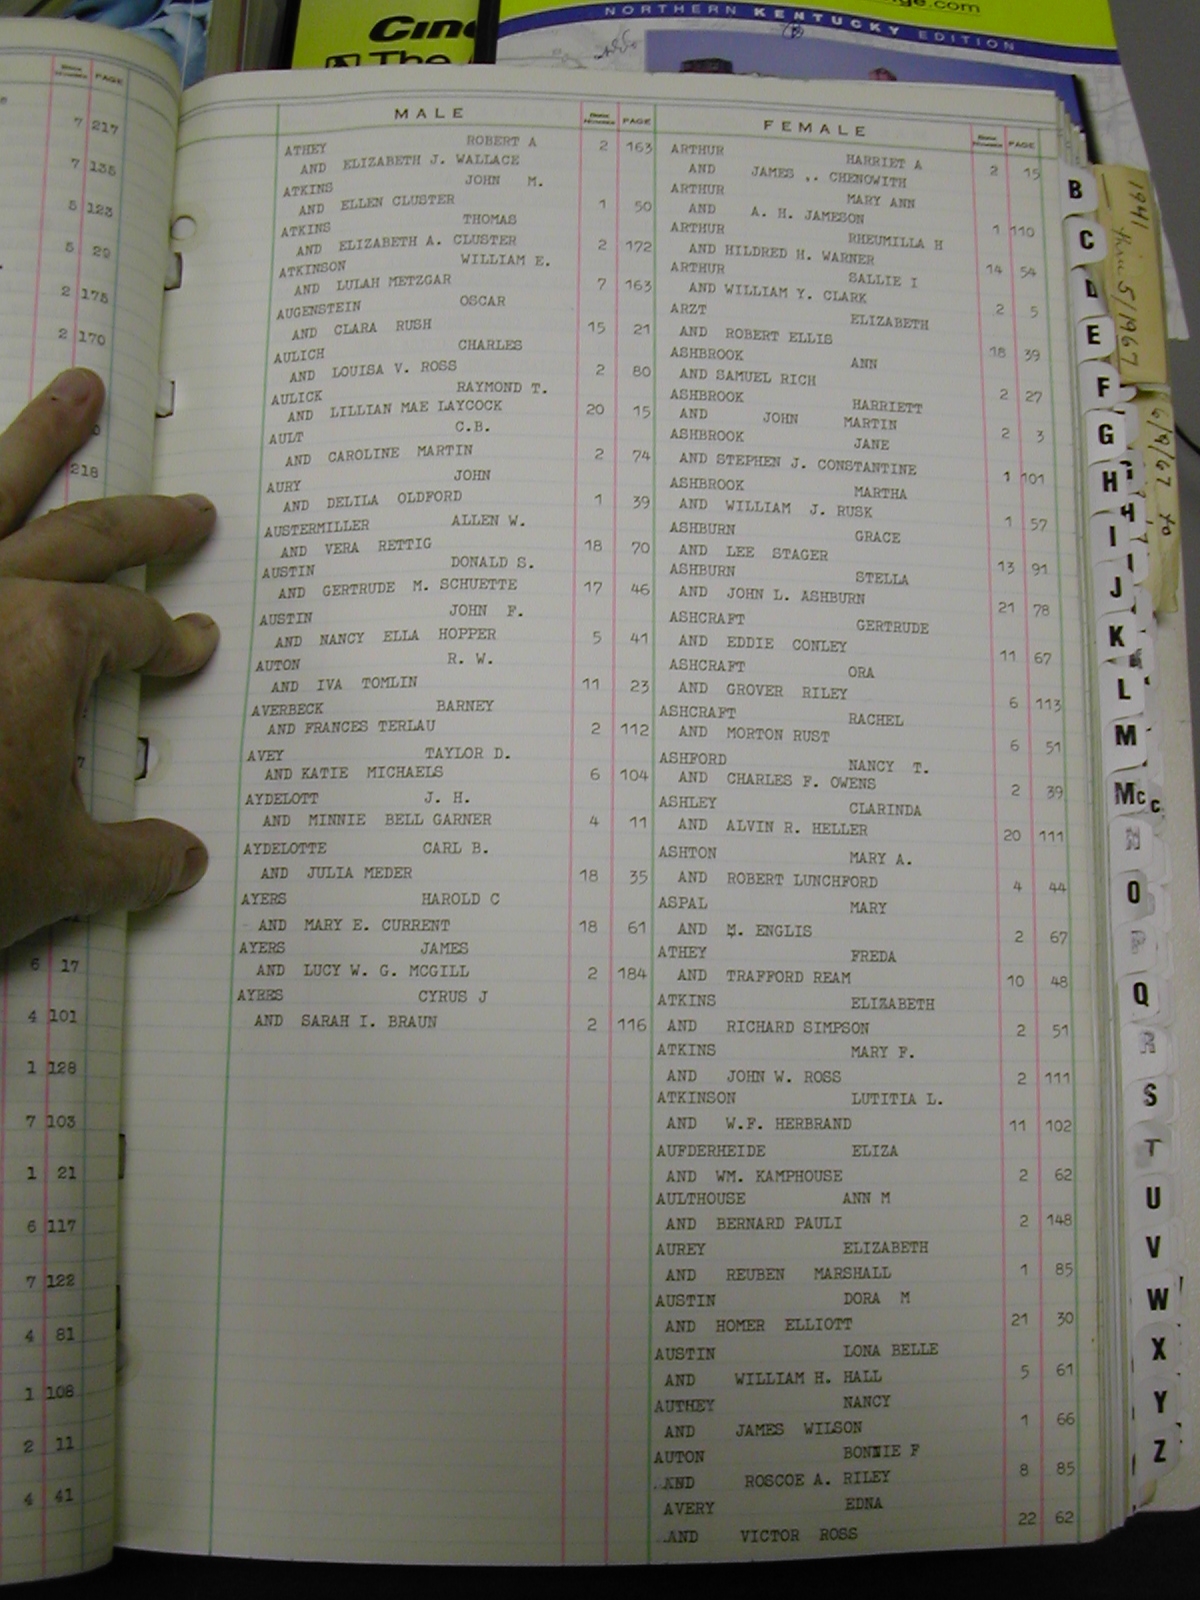 nge.com
NORTHERN KENTUCKY EDITION
Cinc
The
PAGE
7 217
7 135
5 123
5 29
2 175
2 170
218
7
6 17
4 101
1 128
7 103
1 21
6 117
7 122
4 81
1 108
2 11
4 41
MALE BOOK NUMBER PAGE
ATHEY ROBERT A 2 163
AND ELIZABETH J. WALLACE
ATKINS JOHN M.
AND ELLEN CLUSTER 1 50
ATKINS THOMAS
AND ELIZABETH A. CLUSTER 2 172
ATKINSON WILLIAM E.
AND LULAH METZGAR 7 163
AUGENSTEIN OSCAR
AND CLARA RUSH 15 21
AULICH CHARLES
AND LOUISA V. ROSS 2 80
AULICK RAYMOND T.
AND LILLIAN MAE LAYCOCK 20 15
AULT C.B.
AND CAROLINE MARTIN 2 74
AURY JOHN
AND DELILA OLDFORD 1 39
AUSTERMILLER ALLEN W.
AND VERA RETTIG 18 70
AUSTIN DONALD S.
AND GERTRUDE M. SCHUETTE 17 46
AUSTIN JOHN F.
AND NANCY ELLA HOPPER 5 41
AUTON R. W.
AND IVA TOMLIN 11 23
AVERBECK BARNEY
AND FRANCES TERLAU 2 112
AVEY TAYLOR D.
AND KATIE MICHAELS 6 104
AYDELOTT J. H.
AND MINNIE BELL GARNER 4 11
AYDELOTTE CARL B.
AND JULIA MEDER 18 35
AYERS HAROLD C
AND MARY E. CURRENT 18 61
AYERS JAMES
AND LUCY W. G. MCGILL 2 184
AYRES CYRUS J
AND SARAH I. BRAUN 2 116
FEMALE BOOK NUMBER PAGE
ARTHUR HARRIET A
AND JAMES .. CHENOWITH 2 15
ARTHUR MARY ANN
AND A. H. JAMESON 1 110
ARTHUR RHEUMILLA H
AND HILDRED H. WARNER 14 54
ARTHUR SALLIE I
AND WILLIAM Y. CLARK 2 5
ARZT ELIZABETH
AND ROBERT ELLIS 18 39
ASHBROOK ANN
AND SAMUEL RICH 2 27
ASHBROOK HARRIETT
AND JOHN MARTIN 2 3
ASHBROOK JANE
AND STEPHEN J. CONSTANTINE 1 101
ASHBROOK MARTHA
AND WILLIAM J. RUSK 1 57
ASHBURN GRACE
AND LEE STAGER 13 91
ASHBURN STELLA
AND JOHN L. ASHBURN 21 78
ASHCRAFT GERTRUDE
AND EDDIE CONLEY 11 67
ASHCRAFT ORA
AND GROVER RILEY 6 113
ASHCRAFT RACHEL
AND MORTON RUST 6 51
ASHFORD NANCY T.
AND CHARLES F. OWENS 2 39
ASHLEY CLARINDA
AND ALVIN R. HELLER 20 111
ASHTON MARY A.
AND ROBERT LUNCHFORD 4 44
ASPAL MARY
AND M. ENGLIS 2 67
ATHEY FREDA
AND TRAFFORD REAM 10 48
ATKINS ELIZABETH
AND RICHARD SIMPSON 2 51
ATKINS MARY F.
AND JOHN W. ROSS 2 111
ATKINSON LUTITIA L.
AND W.F. HERBRAND 11 102
AUFDERHEIDE ELIZA
AND WM. KAMPHOUSE 2 62
AULTHOUSE ANN M
AND BERNARD PAULI 2 148
AUREY ELIZABETH
AND REUBEN MARSHALL 1 85
AUSTIN DORA M
AND HOMER ELLIOTT 21 30
AUSTIN LONA BELLE
AND WILLIAM H. HALL 5 61
AUTHEY NANCY
AND JAMES WILSON 1 66
AUTON BONNIE F
AND ROSCOE A. RILEY 8 85
AVERY EDNA
AND VICTOR ROSS 22 62
B
C
D
E
F
G
H
I
J
K
L
M
Mc
N
O
P
Q
R
S
T
U
V
W
X
Y
Z
1941 thru 5/1967
6/9/67 to